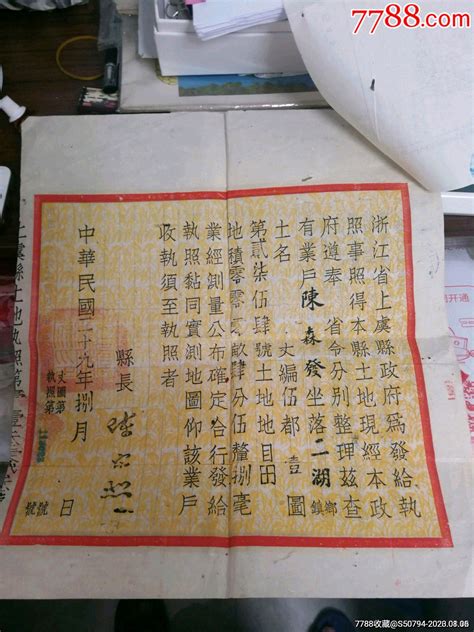 7788.com
浙江省上虞縣政府為發給執
照事照得本縣土地現經本政
府遵奉 省令分別整理茲查
有業戶陳森發坐落二湖鄉鎮
土名 丈編伍都壹圖
第貳柒伍肆號土地地目田
地積零零 畝肆分伍釐捌毫
業經測量公布確定合行發給
執照黏同實測地圖仰該業戶
收執須至執照者
縣長
中華民國二十九年捌月 日
丈圖第 號
執照第 號
上虞縣土地執照第
7788收藏@S50794-2023.08.08